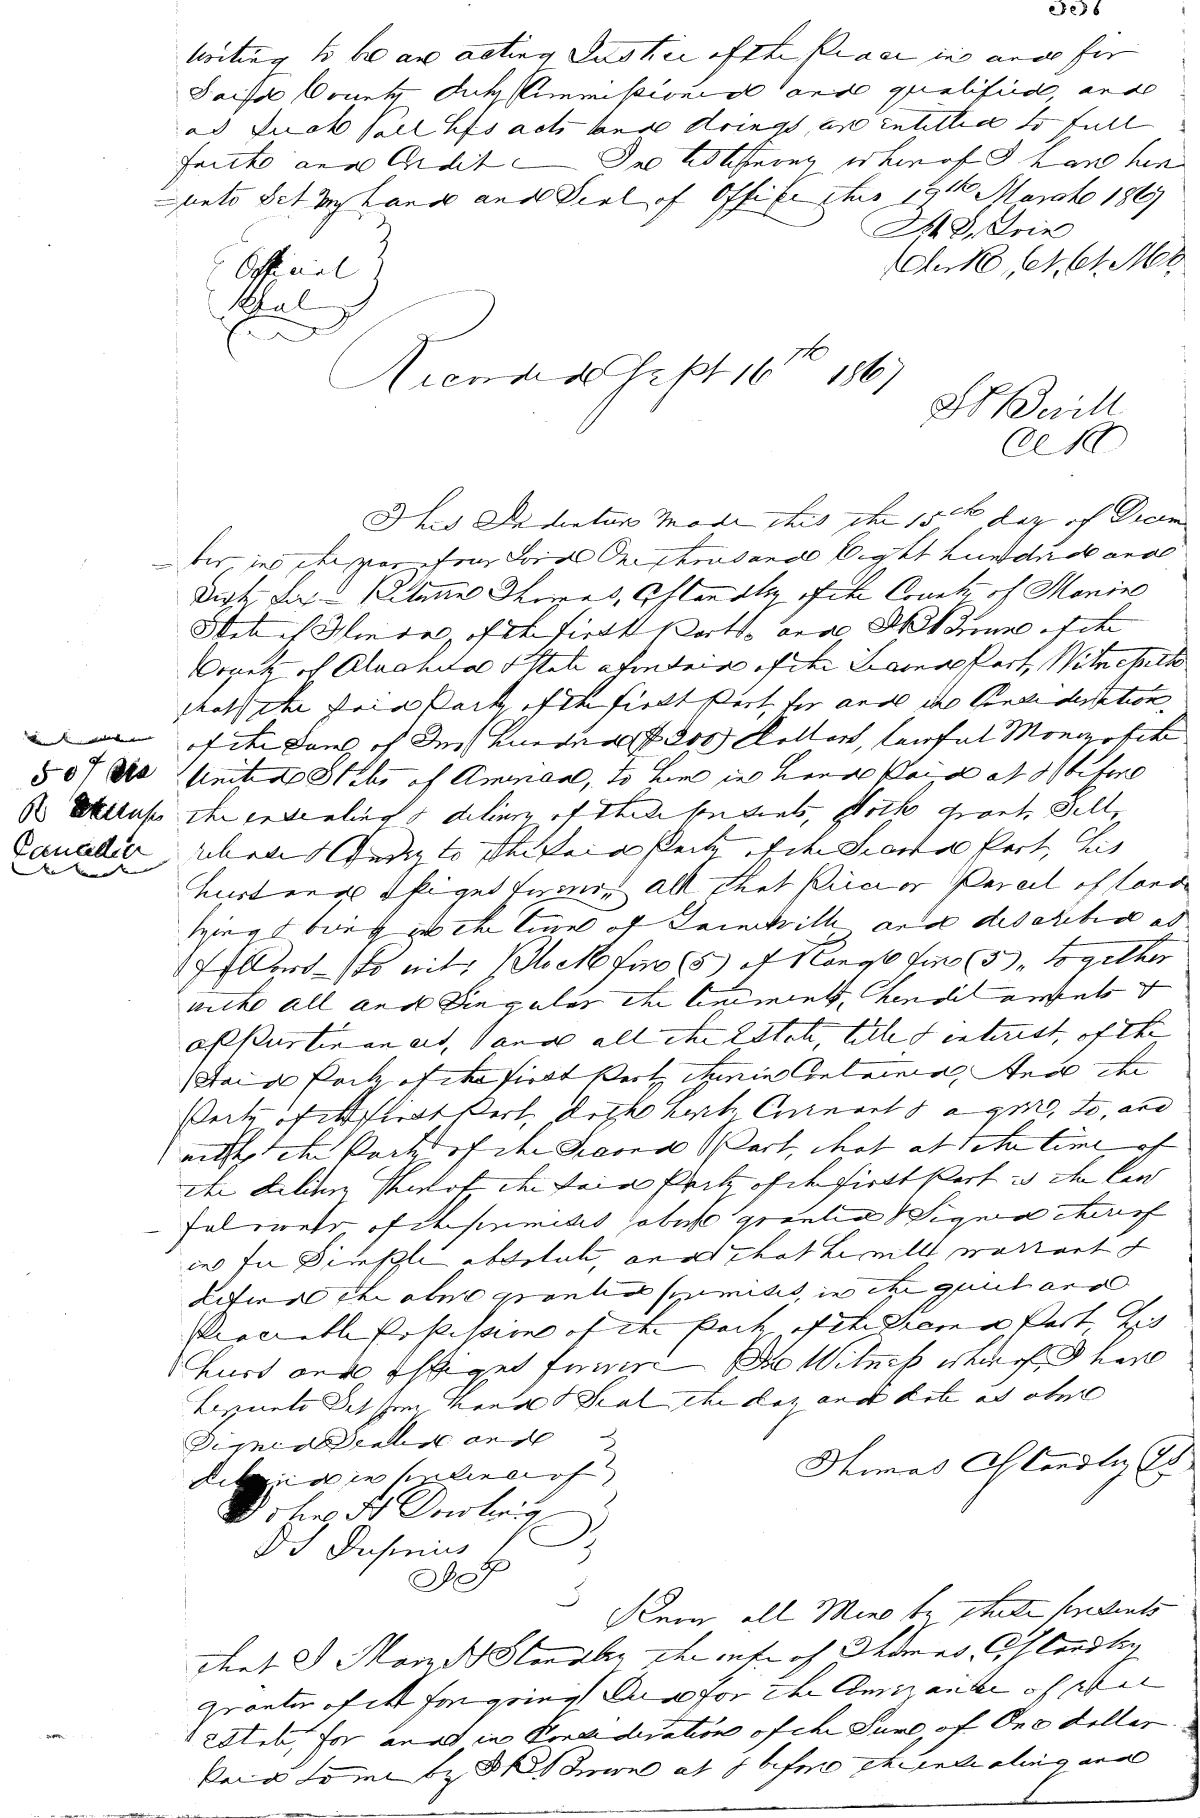 writing to be an acting Justice of the Peace in and for
Said County duly Commissioned and qualified, and
as Such all his acts and doings, are entitled to full
faith and Credit — In testimony whereof I have here
=unto Set my hand and Seal of Office this 19th March 1867
Clerk, Ct. Ct. M C
Official
Seal
Recorded Sept 16th 1867
Clk
This Indenture made this the 15th day of Decem
= ber, in the year of our Lord One thousand Eight hundred and
Sixty Six – Between Thomas, C Standley of the County of Marion
State of Florida, of the first Part, and Brown of the
County of Alachua & State aforesaid of the Second Part, Witnesseth
that the Said Party of the first Part, for and in Consideration
of the Sum of Two hundred ($200) dollars, lawful Money of the
United States of America, to him in hand Paid at & before
the ensealing & delivery of these presents, doth grant, Sell,
release & Convey to the Said Party of the Second Part, his
heirs and assigns forever, all that Piece or Parcel of land
lying & being in the town of Gainesville and described as
follows – to wit: Block five (5) of Range five (5), together
with all and Singular the tenements, hereditaments &
appurtenances, and all the Estate, title & interest, of the
Said Party of the first Part, therein Contained, And the
Party of the first Part, doth hereby Covenant & agree, to, and
with the Party of the Second Part, that at the time of
the delivery thereof the Said Party of the first Part is the law
– ful owner of the premises above granted & Signed thereof
in fee Simple absolute, and that he will warrant &
defend the above granted premises, in the quiet and
Peaceable Possession of the Party of the Second Part, his
heirs and assigns forever In Witness whereof, I have
hereunto Set my hand & Seal the day and date as above
Signed Sealed and
delivered in presence of
Thomas C Standley LS
John H Dowling
Know all Men by these presents
that I Mary Standley the wife of Thomas, C Standley
grantor of the foregoing Deed for the Conveyance of real
estate, for and in Consideration of the Sum of One dollar
Paid to me by Brown at & before the ensealing and